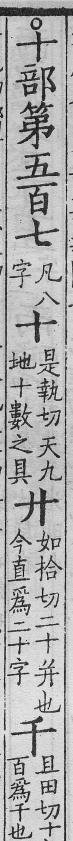 十部第五百七 凡八字 十 是執切天九地十數之具 廿 如拾切二十并也今直爲二十字 千 且田切十百爲千也